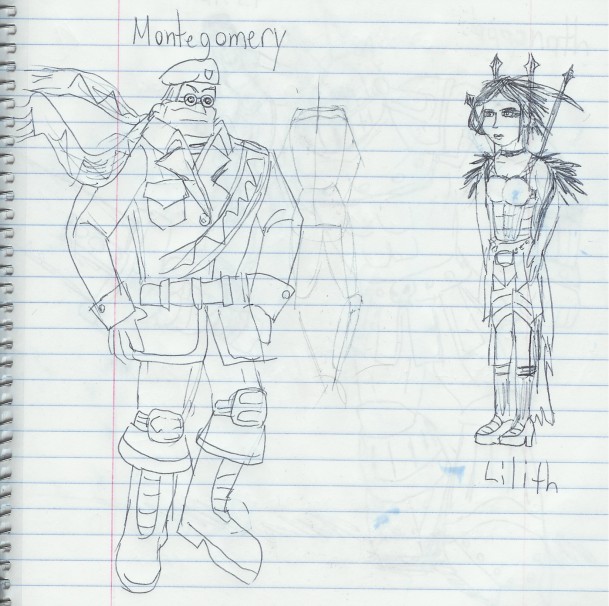 Montegomery
Lilith